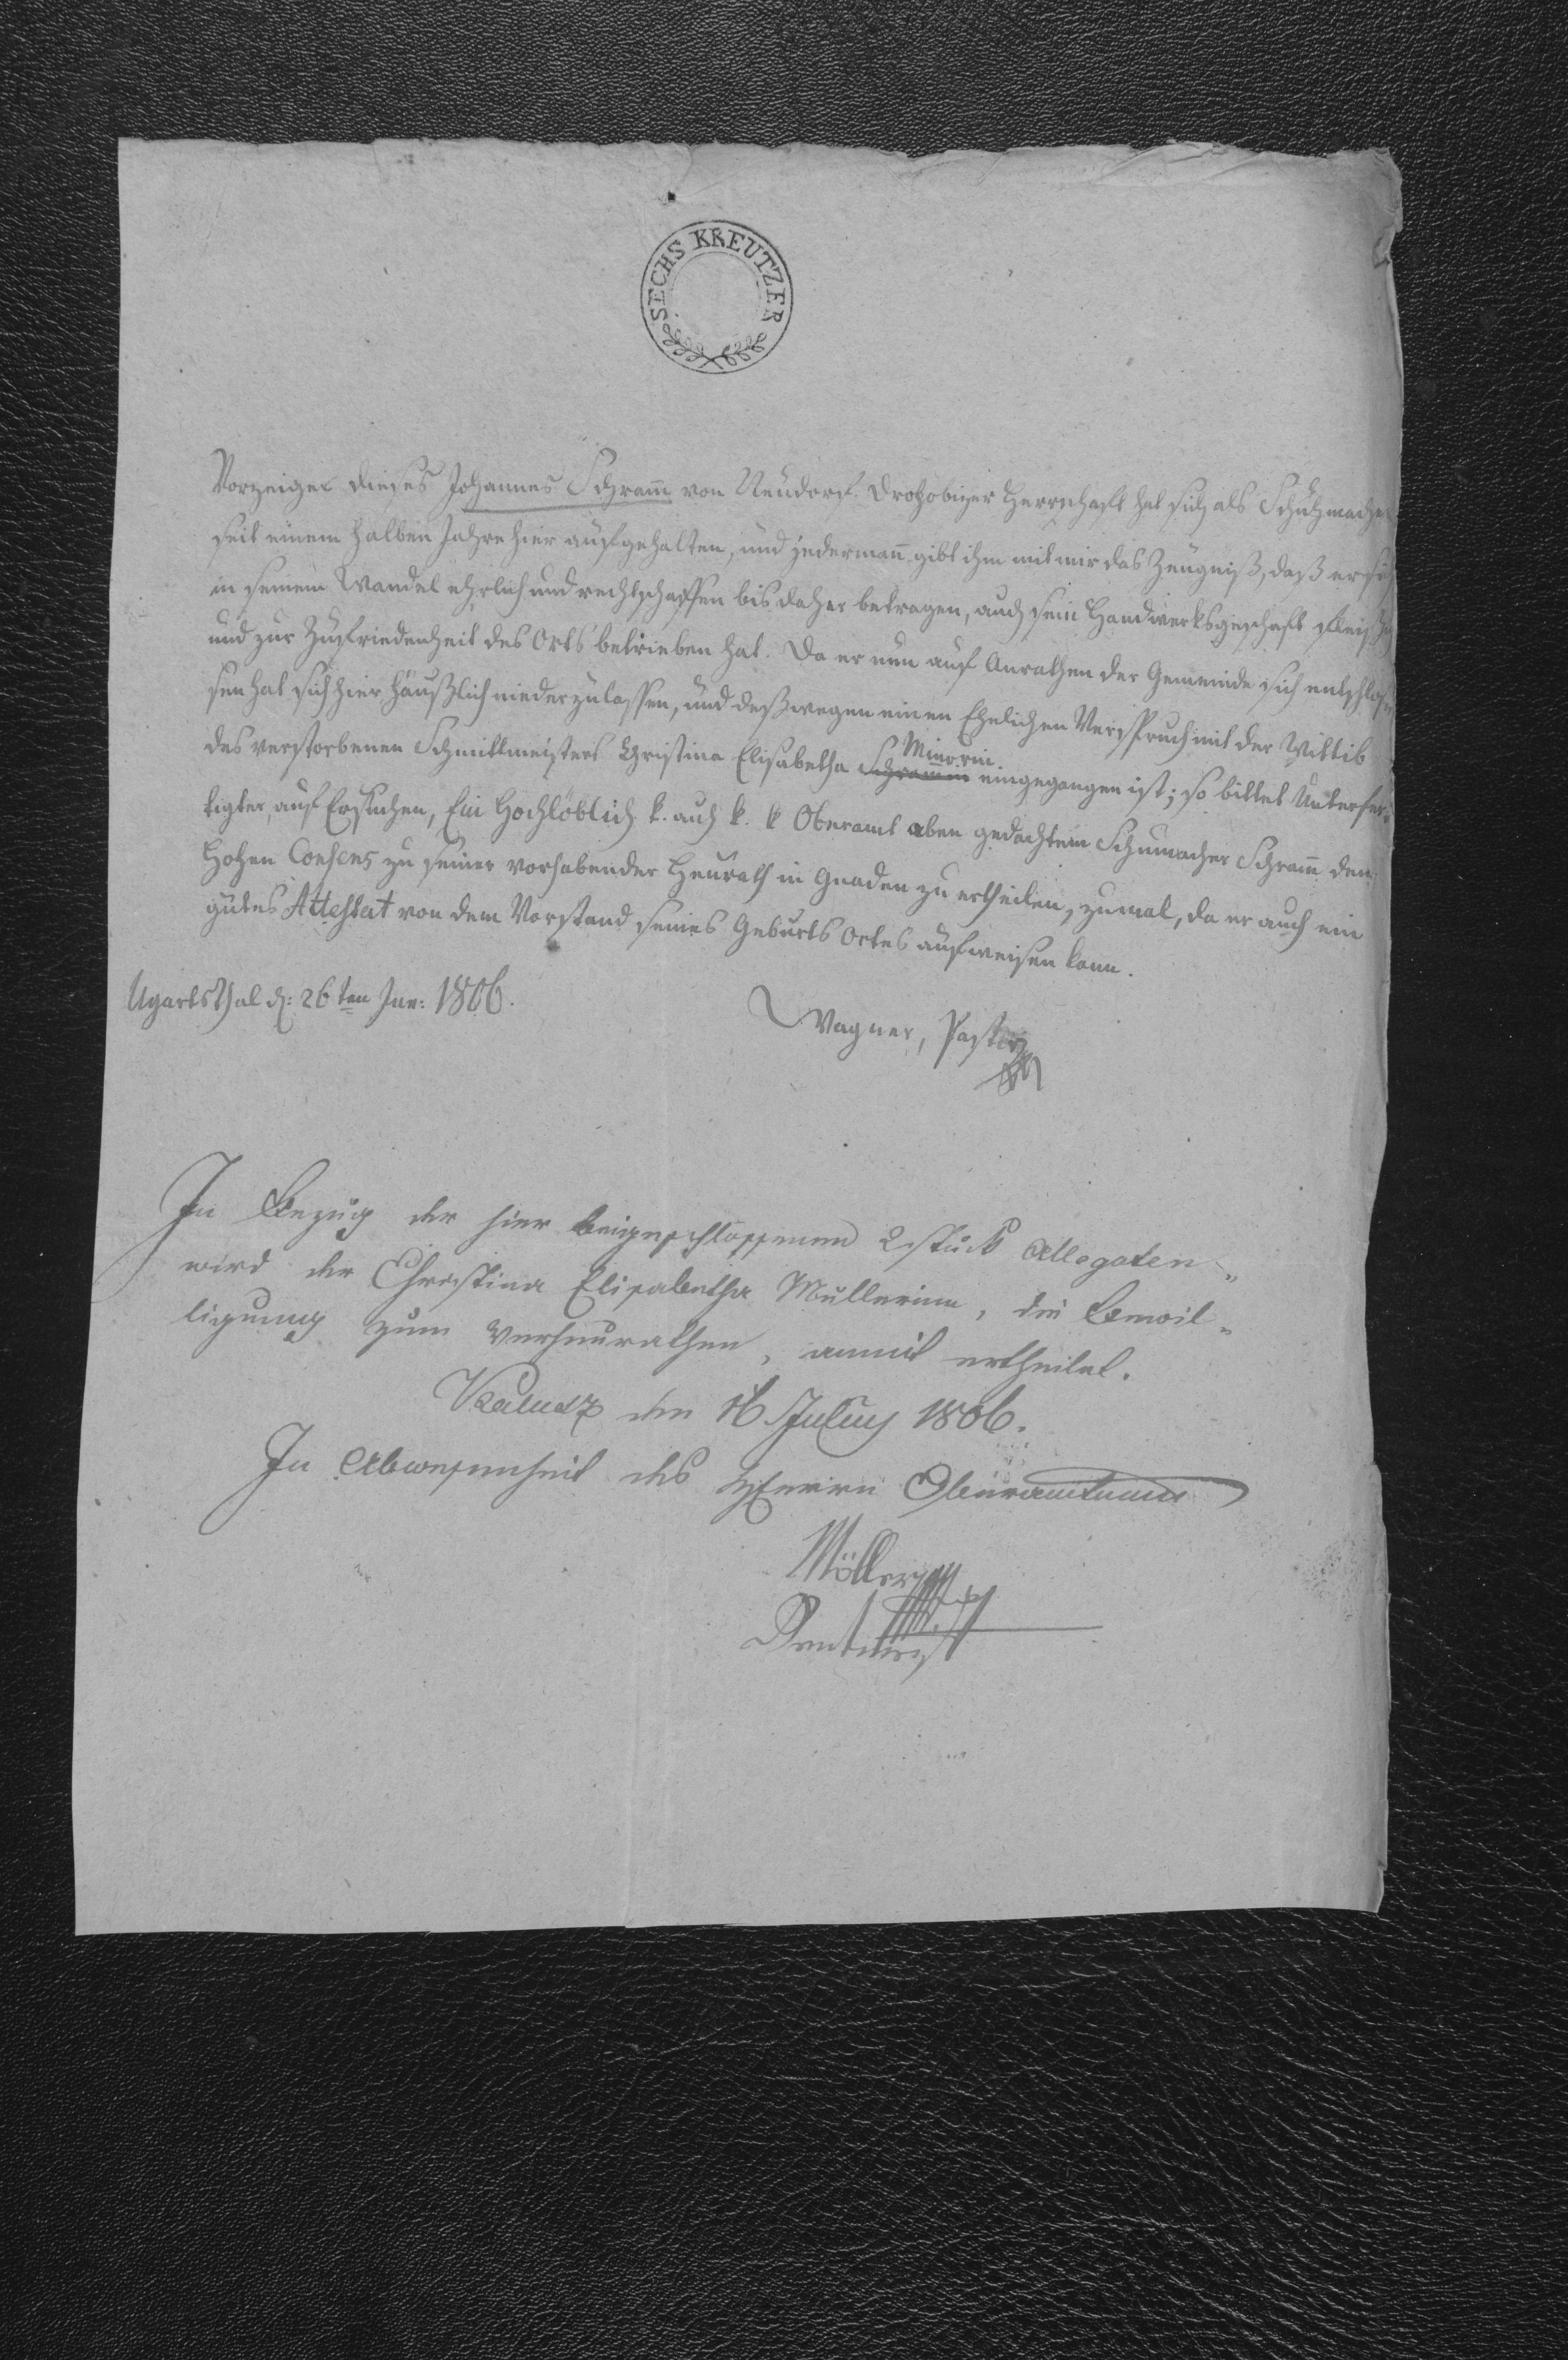 SECHS KREUTZER
Vorzeiger dieses Johannes Schram̄ von Neudorf Drohobizer Herrschaft hat sich als Schuhmacher
seit einem halben Jahre hier aufgehalten, und jederman̄ gibt ihm mit mir das Zeugniß, daß er sich
in seinem Wandel ehrlich und rechtschaffen bis daher betragen, auch sein Handwerksgeschäft fleißig
und zur Zufriedenheit des Orts betrieben hat. Da er nun auf Anrathen der Gemeinde sich entschlos-
sen hat sich hier häußlich niederzulassen, und deßwegen einen Ehelichen Verspruch mit der Wittib
des verstorbenen Schmittmeisters Christina Elisabetha Schram̄in eingegangen ist; so bittet Unterfer-
tigter, auf Ersuchen, Ein Hochlöblich k. auch k. k Oberamt oben gedachtem Schumacher Schram̄ den
Hohen Consens zu seiner vorhabender Heurath in Gnaden zu ertheilen, zumal, da er auch ein
gutes Attestat von dem Vorstand seines Geburts Ortes aufweisen kann.
Ugartsthal d: 26ten Jun: 1806.
Wagner, Pastor
In Bezug der hier beigeschlossenen 2 Stück Allegaten
wird der Christina Elisabetha Müllerinn, die Bewil-
ligung zum Verheurathen, anmit ertheilet.
Kalusz den July 1806.
In Abwesenheit des Herrn Oberamtmann
Möller